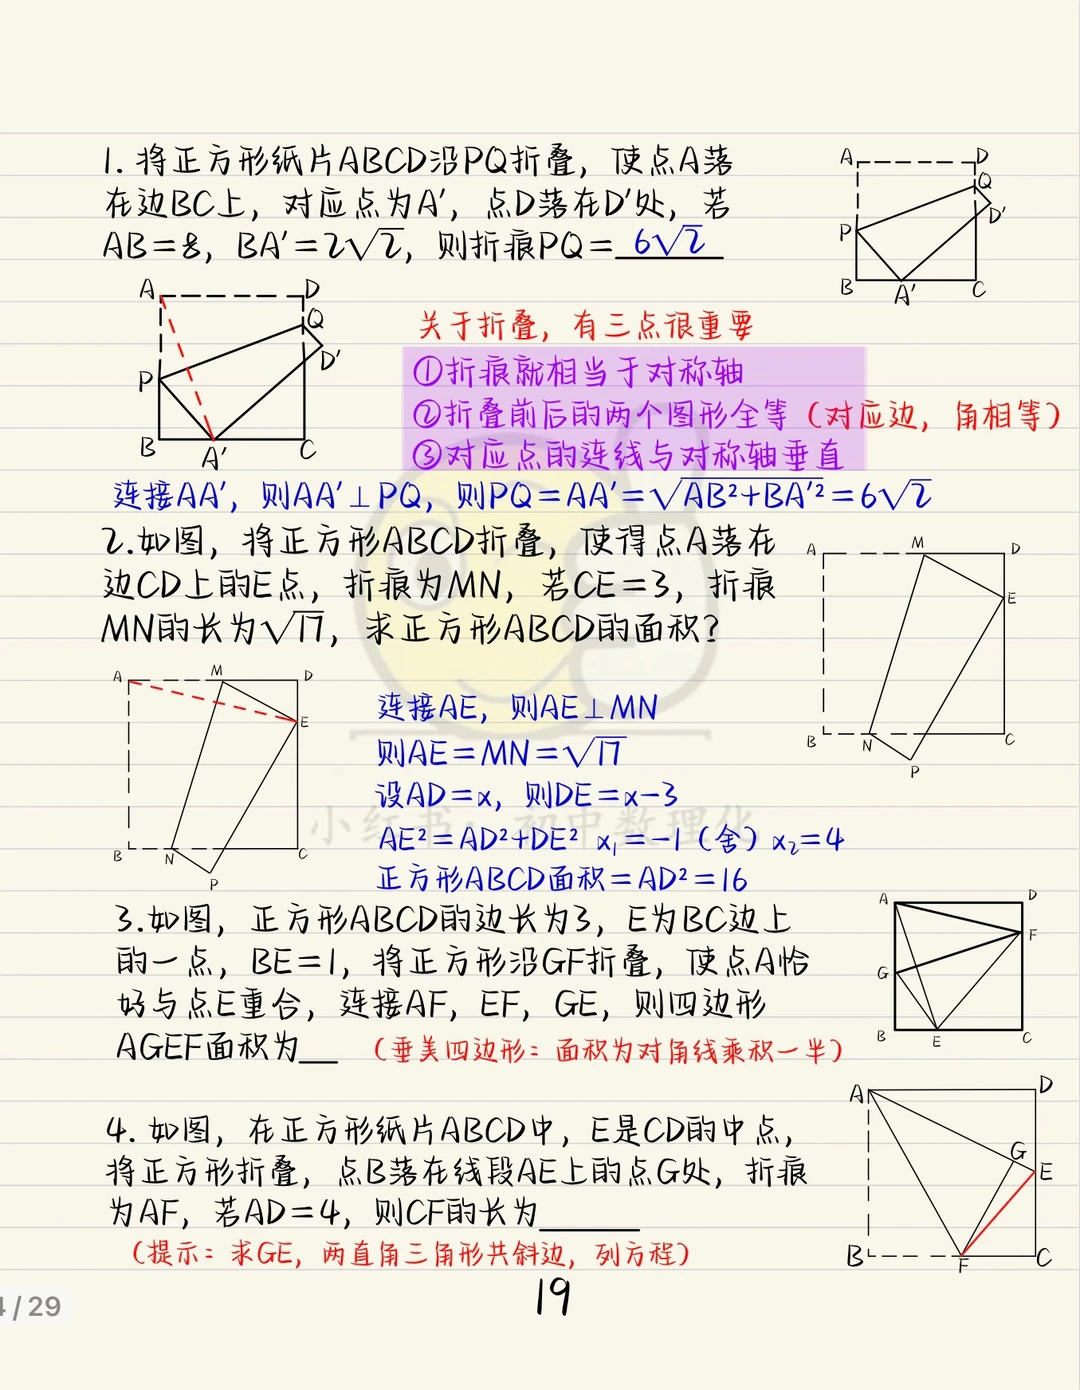 1. 将正方形纸片ABCD沿PQ折叠，使点A落
在边BC上，对应点为A′，点D落在D′处，若
AB=8，BA′=2√2，则折痕PQ=6√2
A
D
Q
D′
P
B
A′
C
A
D
Q
D′
P
B
A′
C
关于折叠，有三点很重要
①折痕就相当于对称轴
②折叠前后的两个图形全等（对应边，角相等）
③对应点的连线与对称轴垂直
连接AA′，则AA′⊥PQ，则PQ=AA′=√AB²+BA′²=6√2
2.如图，将正方形ABCD折叠，使得点A落在
边CD上的E点，折痕为MN，若CE=3，折痕
MN的长为√17，求正方形ABCD的面积？
A
M
D
E
B
N
C
P
A
M
D
E
B
N
C
P
连接AE，则AE⊥MN
则AE=MN=√17
设AD=x，则DE=x-3
AE²=AD²+DE² x₁=-1（舍）x₂=4
正方形ABCD面积=AD²=16
小红书：初中数理化
3.如图，正方形ABCD的边长为3，E为BC边上
的一点，BE=1，将正方形沿GF折叠，使点A恰
好与点E重合，连接AF，EF，GE，则四边形
AGEF面积为__（垂美四边形：面积为对角线乘积一半）
A
D
F
G
B
E
C
4. 如图，在正方形纸片ABCD中，E是CD的中点，
将正方形折叠，点B落在线段AE上的点G处，折痕
为AF，若AD=4，则CF的长为____
（提示：求GE，两直角三角形共斜边，列方程）
A
D
G
E
B
F
C
19
/29